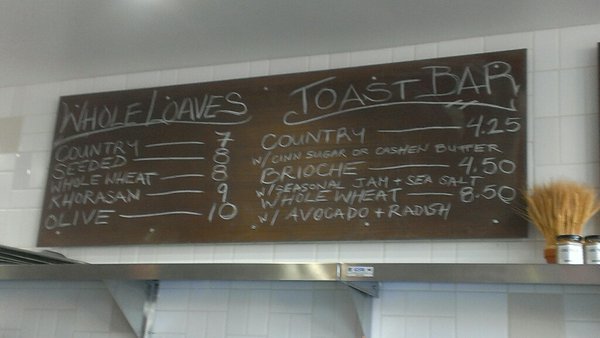 WHOLE LOAVES
COUNTRY — 7
SEEDED — 8
WHOLE WHEAT — 8
KHORASAN — 9
OLIVE — 10
TOAST BAR
COUNTRY — 4.25
W/ CINN SUGAR OR CASHEW BUTTER
BRIOCHE — 4.50
W/ SEASONAL JAM + SEA SALT
WHOLE WHEAT — 8.50
W/ AVOCADO + RADISH